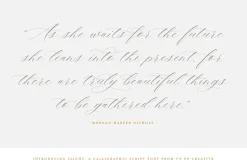 "As she waits for the future
she leans into the present, for
there are truly beautiful things
to be gathered here."
MORGAN HARPER NICHOLS
INTRODUCING SALINE, A CALLIGRAPHIC SCRIPT FONT FROM TO BE CREATIVE